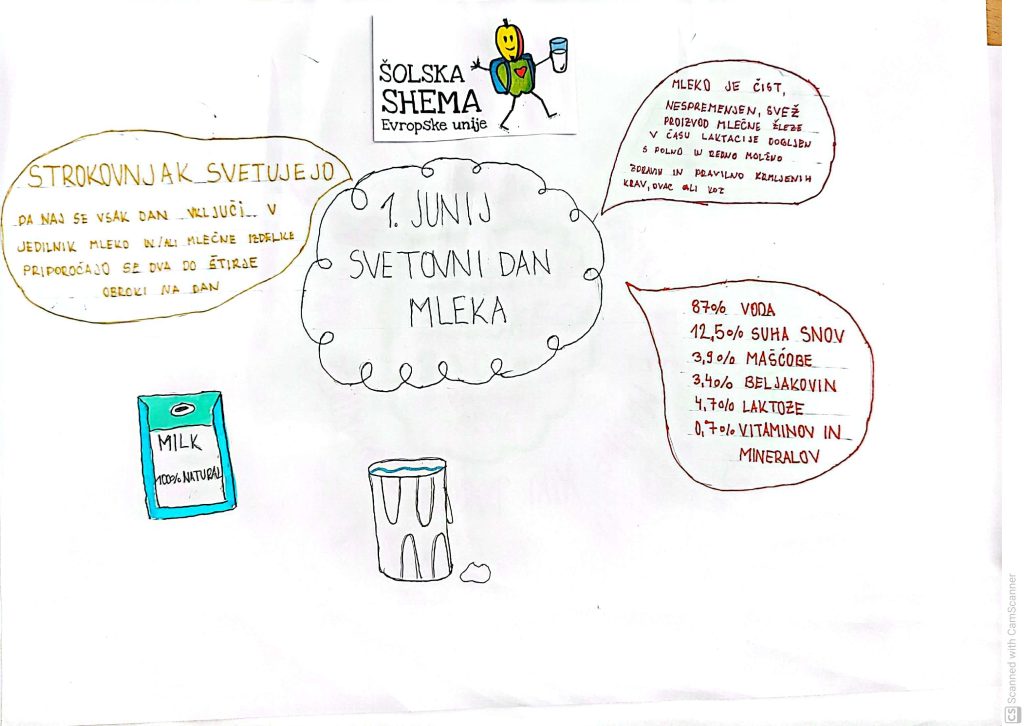 ŠOLSKA
SHEMA
Evropske unije
STROKOVNJAK SVETUJEJO
DA NAJ SE VSAK DAN VKLJUČI V
JEDILNIK MLEKO IN/ALI MLEČNE IZDELKE
PRIPOROČAJO SE DVA DO ŠTIRJE
OBROKI NA DAN
1. JUNIJ
SVETOVNI DAN
MLEKA
MLEKO JE ČIST,
NESPREMENJEN, SVEŽ
PROIZVOD MLEČNE ŽLEZE
V ČASU LAKTACIJE DOBLJEN
S POLNO IN REDNO MOLŽNO
ZDRAVIH IN PRAVILNO KRMLJENIH
KRAV, OVAC ALI KOZ
87% VODA
12,5% SUHA SNOV
3,9% MAŠČOBE
3,4% BELJAKOVIN
4,7% LAKTOZE
0,7% VITAMINOV IN
MINERALOV
MILK
100% NATURAL
CS Scanned with CamScanner